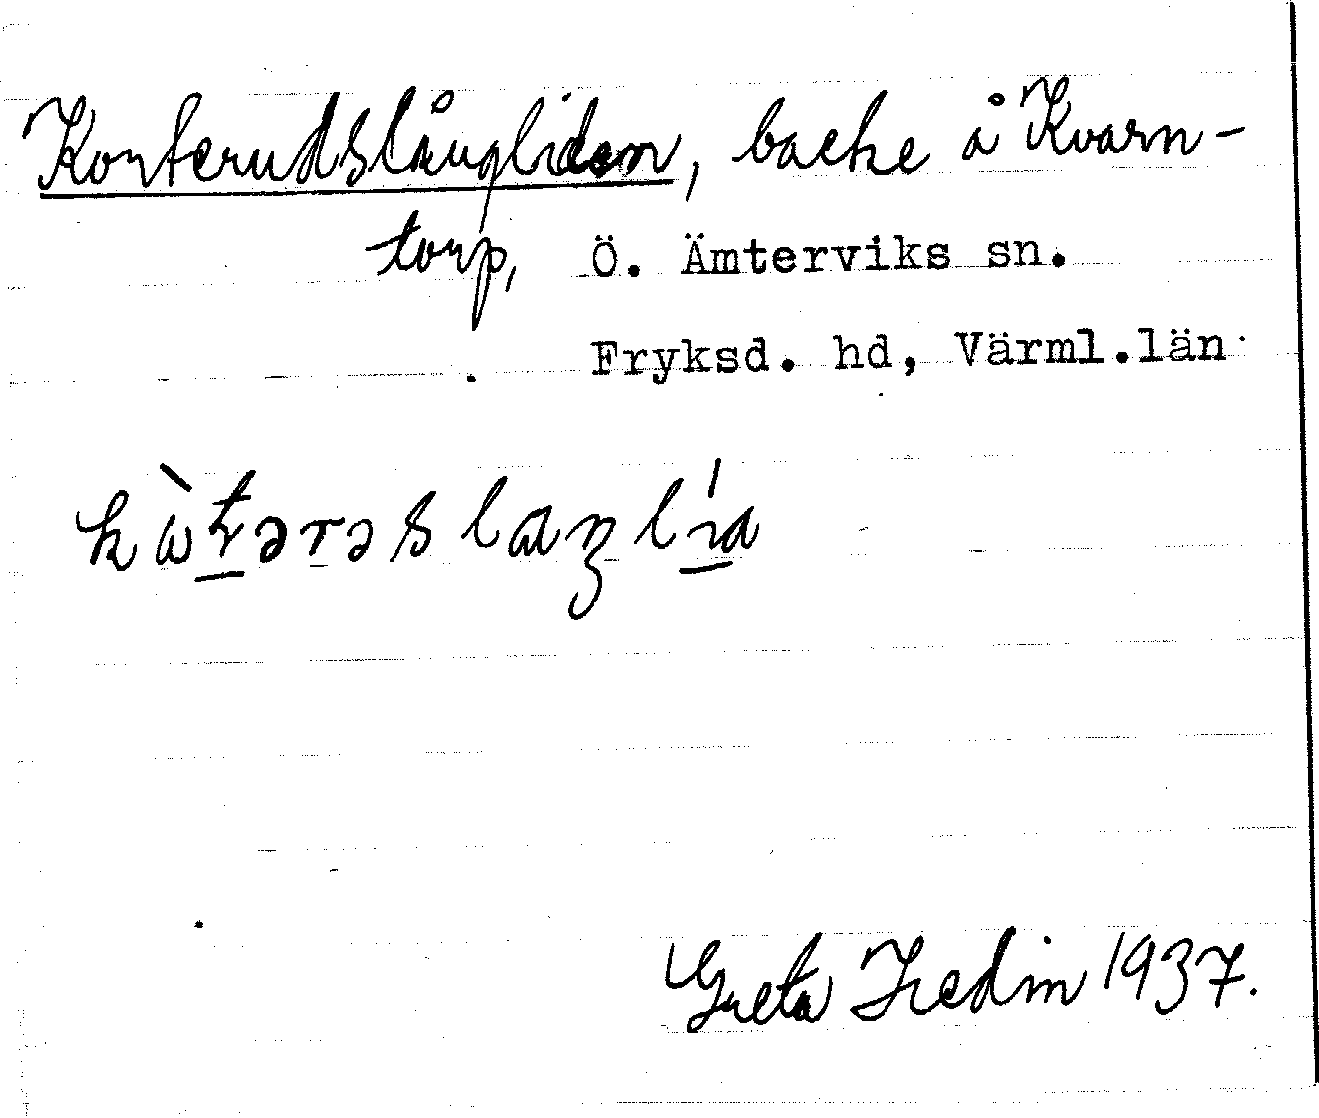 Konterudslångliden, backe å Kvarn-
torp, Ö. Ämterviks sn.
Fryksd. hd, Värml.län
Greta Hedin 1937.